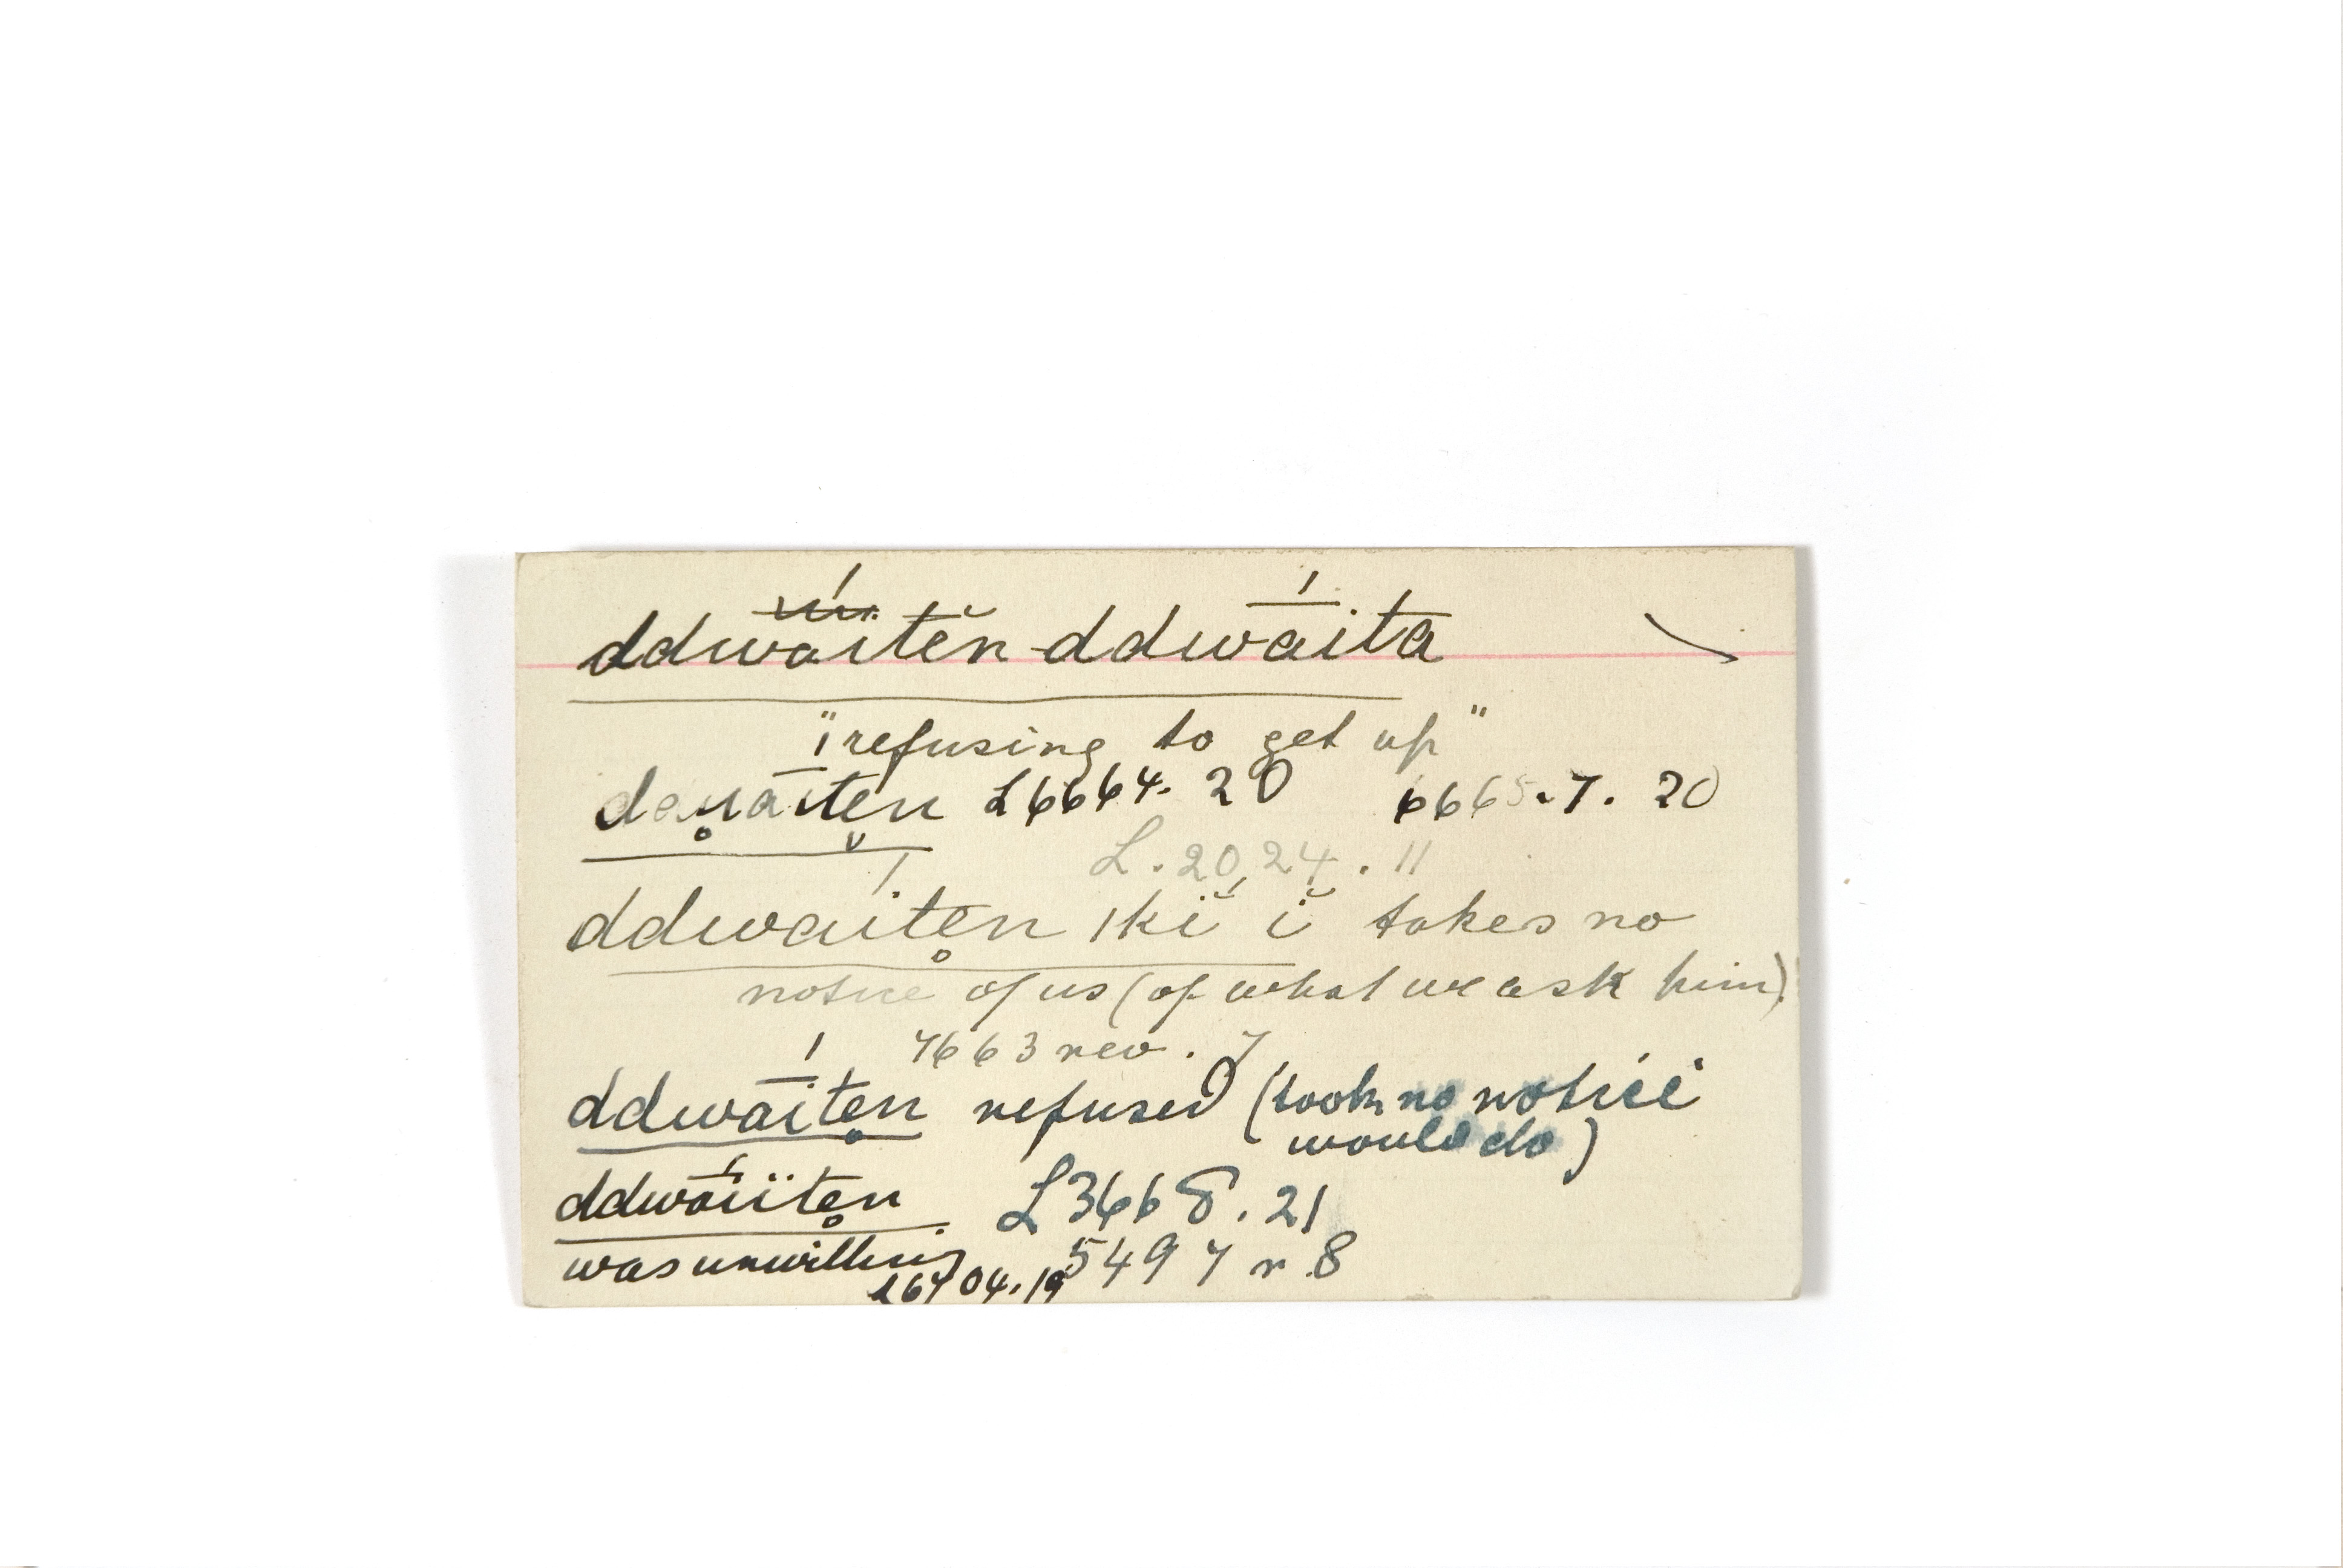 ddwāītĕn-ddwā́ita
"refusing to get up"
L6664. 20 6665.7. 20
L. 20,24. 11
ddwaitẹn ikĭ ĭ takes no
notice of us (of what we ask him)
7663 rev. 7
ddwā́itẹn refused (took no notice
would do)
ddwāïtẹn L3668. 21
was unwilling 5497 r 8
L6704.19